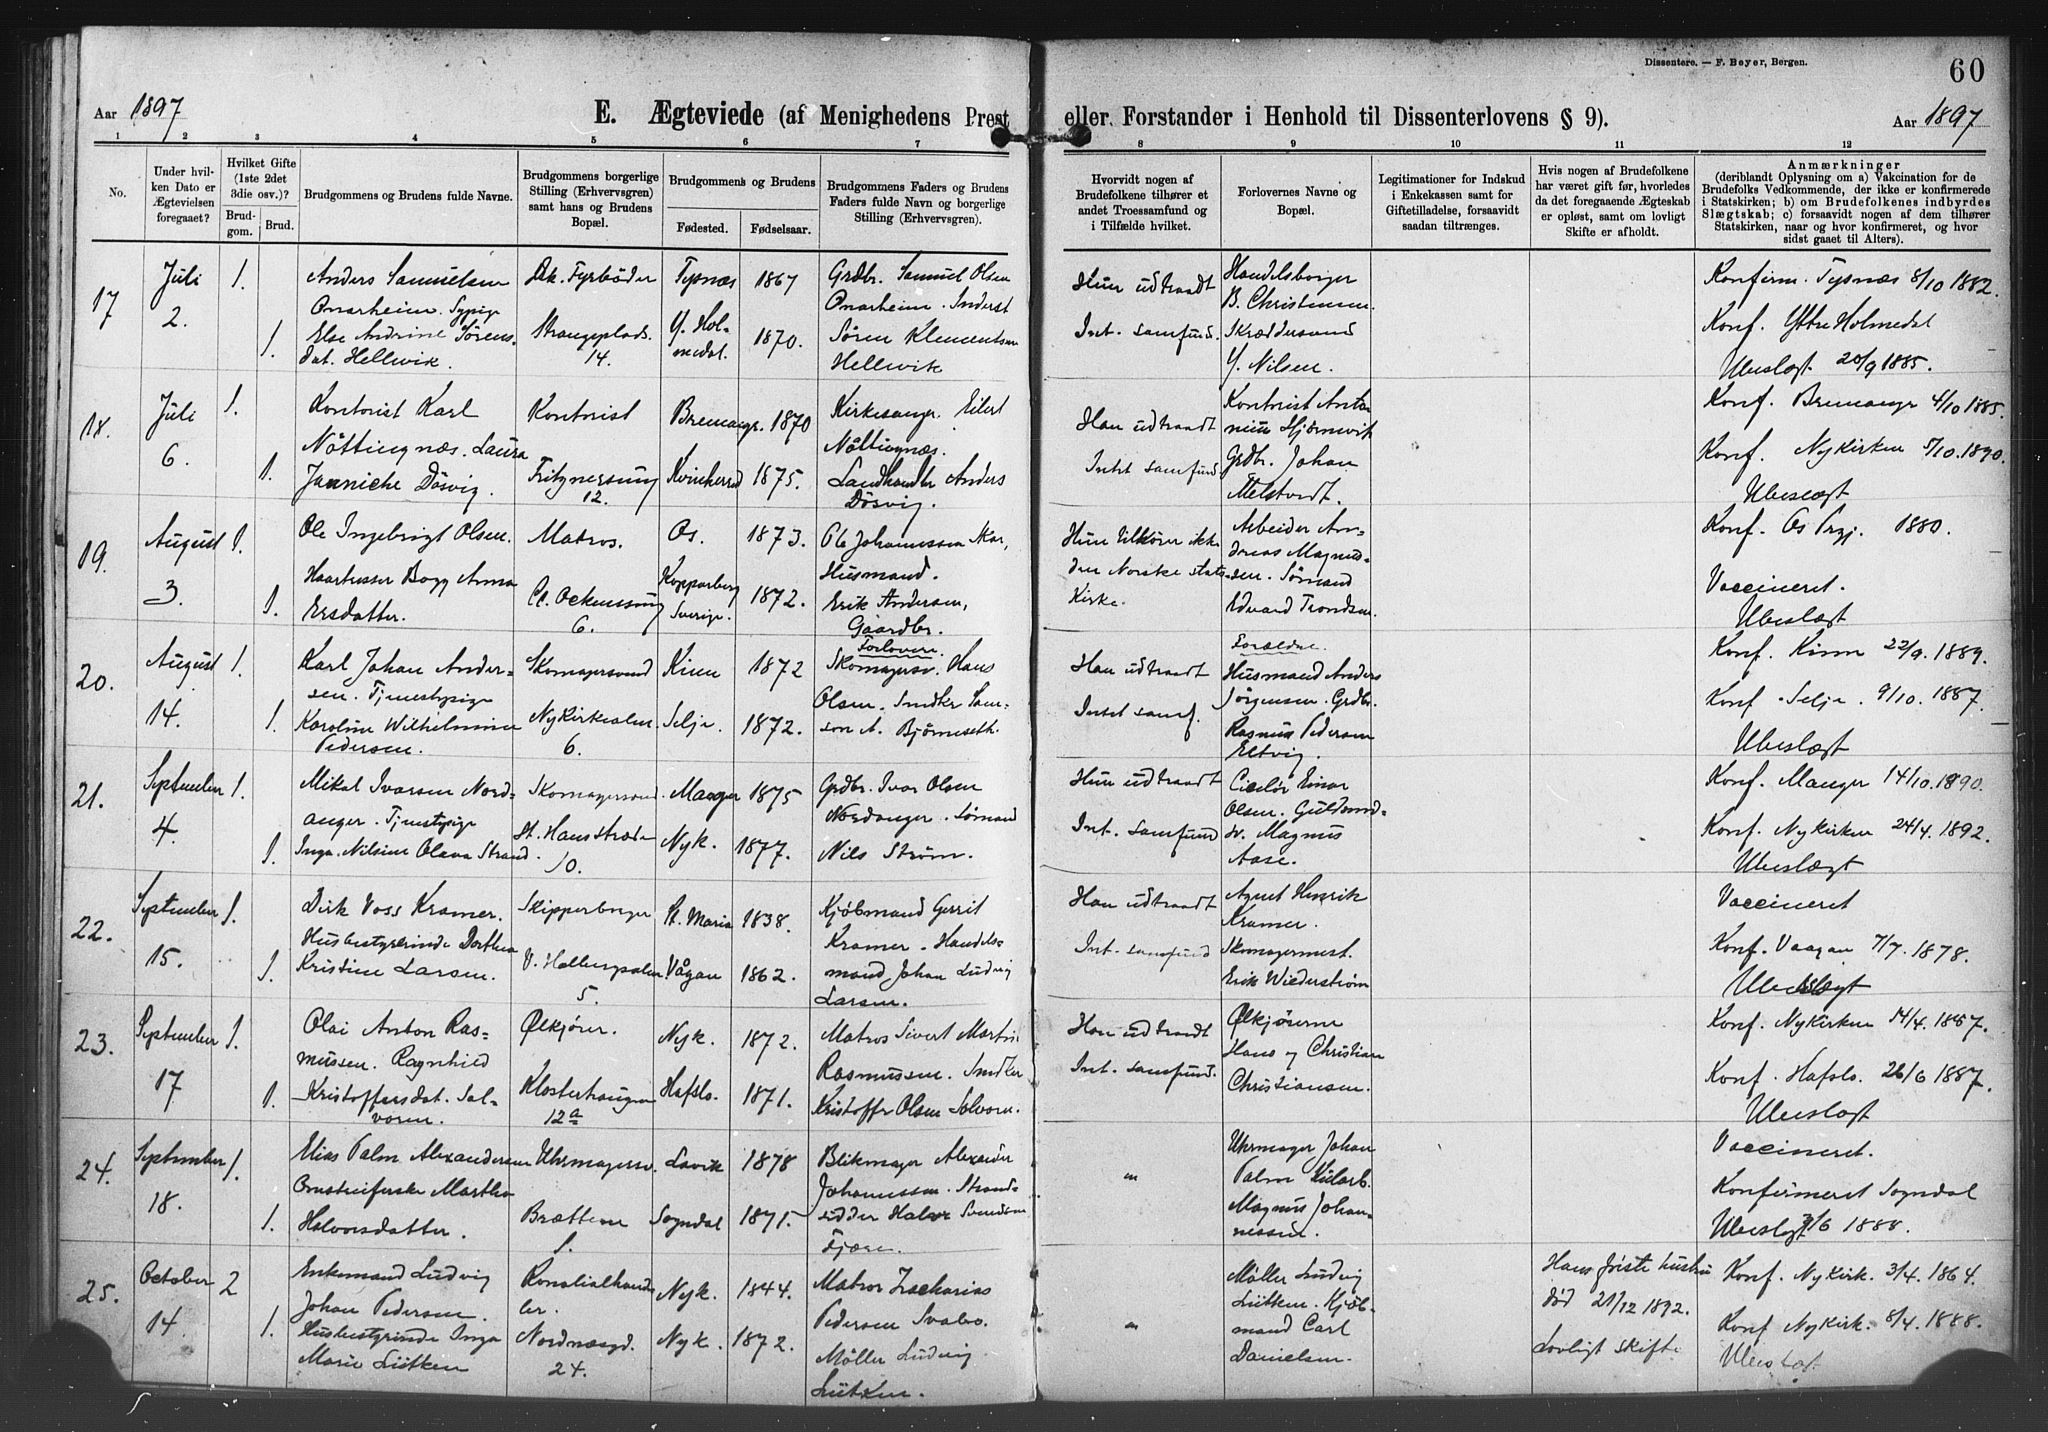 Dissentere. — F. Beyer, Bergen.
60
Aar 1897
E. Ægteviede (af Menighedens Prest
eller Forstander i Henhold til Dissenterlovens § 9).
Aar 1897
1 2 3 4 5 6 7
8 9 10 11 12
No.
Under hvil-
ken Dato er
Ægtevielsen
foregaaet?
Hvilket Gifte
(1ste 2det
3die osv.)?
Brud-
gom.
Brud.
Brudgommens og Brudens fulde Navne.
Brudgommens borgerlige
Stilling (Erhvervsgren)
samt hans og Brudens
Bopæl.
Brudgommens og Brudens
Fødested.
Fødselsaar.
Brudgommens Faders og Brudens
Faders fulde Navn og borgerlige
Stilling (Erhvervsgren).
Hvorvidt nogen af
Brudefolkene tilhører et
andet Troessamfund og
i Tilfælde hvilket.
Forlovernes Navne og
Bopæl.
Legitimationer for Indskud
i Enkekassen samt for
Giftetilladelse, forsaavidt
saadan tiltrænges.
Hvis nogen af Brudefolkene
har været gift før, hvorledes
da det foregaaende Ægteskab
er opløst, samt om lovligt
Skifte er afholdt.
Anmærkninger
(deriblandt Oplysning om a) Vakcination for de
Brudefolks Vedkommende, der ikke er konfirmerede
i Statskirken; b) om Brudefolkenes indbyrdes
Slægtskab; c) forsaavidt nogen af dem tilhører
Statskirken, naar og hvor konfirmeret, og hvor
sidst gaaet til Alters).
17
Juli
2.
1.
1.
Anders Samuelsen
Onarheim. Sypige
Else Andrine Sørens-
dat. Hellevik.
Dk. Fyrbøder
Strangeplads.
14.
Tysnæs
Y. Hol-
medal.
1867
1870.
Grdbr. Samuel Olsen
Onarheim. Inderst
Søren Klementsen
Hellevik
Hun udtraadt
Int. samfund.
Handelsborger
B. Christensen.
Skræddersvend
Y. Nilsen.
Konfirm. Tysnæs 8/10 1882.
Konf. Yttre Holmedal
Ubeslægt 20/9 1885.
18.
Juli
6.
1.
1.
Kontorist Karl
Nöttingnæs. Laura
Jannicke Døsvig.
Kontorist
Fritznersmug
12.
Bremangr.
Kvinherred
1870
1875.
Kirkesangr. Eilert
Nöttingnæs.
Landhandler Anders
Døsvig.
Han udtraadt
Intet samfund
Kontorist Anto
nius Hjørnevik
Grdbr. Johan
Konf. Bremangr 4/10 1885.
Konf. Nykirken 5/10.1890.
Ubeslægt
19.
August
3.
1.
1.
Ole Ingebrigt Olsen.
Haarfrisser Bogg Anna
Ersdatter.
Matros.
Cl. Ockenssmug
6.
Os.
Kopparberg
Sverige.
1873.
1872.
Ole Johannessen Mar,
Husmand.
Erik Andersen,
Gaardbr.
Hun tilhører ikke
den Norske stats-
Kirke.
Arbeider An-
dreas Magnus-
sen. Sømand
Edvard Trondsen.
Konf. Os Prgj. 1880.
Vaccineret.
Ubeslægt
20.
August
14.
1.
1.
Karl Johan Ander-
sen. Tjenestepige
Karoline Wilhelmine
Pedersen.
Skomagersvend
Nykirkealm.
6.
Kinn
Selje.
1872
1872.
Forlovere.
Skomagersv. Hans
Olsen. Smdkr Sam-
son A. Bjørneseth.
Han udtraadt
Intet samf.
Forældre.
Husmand Anders
Jørgensen. Grdbr.
Rasmus Pedersen
Eltvig.
Konf. Kinn 22/9. 1889.
Konf. Selje. 9/10. 1887.
Ubeslægt
21.
September
4.
1.
1.
Mikal Ivarsen Nord-
anger. Tjenestepige
Inga. Nilsine Olava Strand
Skomagersvend.
St. Hans stræde
10.
Manger
Nyk.
1875
1877.
Grdbr. Ivar Olsen
Nordanger. Sømand
Nils Strøm.
Hun udtraadt
Int. samfund
Ciselør Einar
Olsen. Guldsmed-
sv. Magnus
Aase.
Konf. Manger 14/10.1890.
Konf. Nykirken 24/4. 1892.
Ubeslægt
22.
September
15.
1.
1.
Dirk Voss Kramer.
Husbestyrerinde Dorthea
Kristine Larsen.
Skipperborger
V. Holbergsalm
5.
St. Maria
Vågan
1838.
1862.
Kjöbmand Gerrit
Kramer. Handels-
mand Johan Ludvig
Larsen.
Han udtraadt
Int. samfund
Agent Henrik
Kramer.
Skomagermest.
Erik Wiederstrøm
Vaccineret
Konf. Vaagan 7/7. 1878.
Ubeslægt
23.
September
17
1.
1.
Olai Anton Ras-
mussen. Ragnhild
Kristoffersdat. Sol-
vorn.
Ølkjører.
Klosterhaugen
12a
Nyk.
Hafslo.
1872.
1871.
Matros Sivert Martin
Rasmussen. Smdkr
Kristoffer Olsen Solvorn.
Han udtraadt
Int. samfund.
Ølkjørerne
Hans og Christian
Christiansen.
Konf. Nykirken 14/4. 1887.
Konf. Hafslo. 26/6 1887.
Ubeslægt
24.
September
18.
1.
1.
Elias Palm Alexandersen
Martha
Halvorsdatter.
Uhrmagersv.
Brætten
1.
Lavik
Sogndal
1878
1871.
Blikmager Alexander
Johannessen. Strand-
sidder Halvor Svendsen
Fjære.
"
Uhrmager Johan
Palm
Magnus Johan-
nessen.
Vaccineret.
Konfirmeret Sogndal
Ubeslægt 3/6 1888.
25.
October
14.
2
1.
Enkemand Ludvig
Johan Pedersen.
Husbestyrinde Inga
Marie Lütken
Konsialhand
ler.
Nordnæsgd.
24.
Nyk.
Nyk.
1844.
1872.
Matros Zacharias
Pedersen Svabo.
Møller Ludvig
Lütken.
"
Møller Ludvig
Lütken. Kjöb-
mand Carl
Danielsen.
Hans første hustru
død 21/12 1892.
Lovligt skifte
Konf. Nykirk. 3/4. 1864.
Konf Nykirk. 8/4. 1888.
Ubeslægt